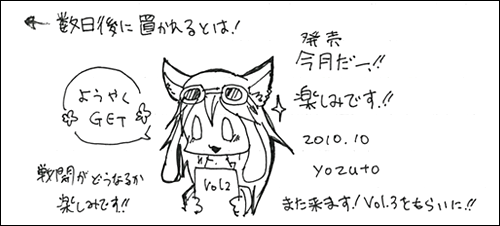 ← 数日後に置かれるとは!
発売
今月だー!!
楽しみです!!
2010.10
yozuto
ようやく
GET
Vol.2
戦闘がどうなるか
楽しみです!!
また来ます! Vol.3をもらいに!!